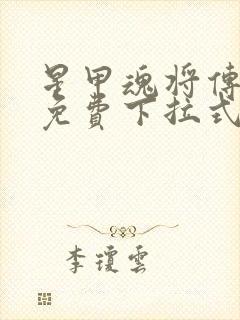 星甲魂将傳
免費下拉式
李瓊雲